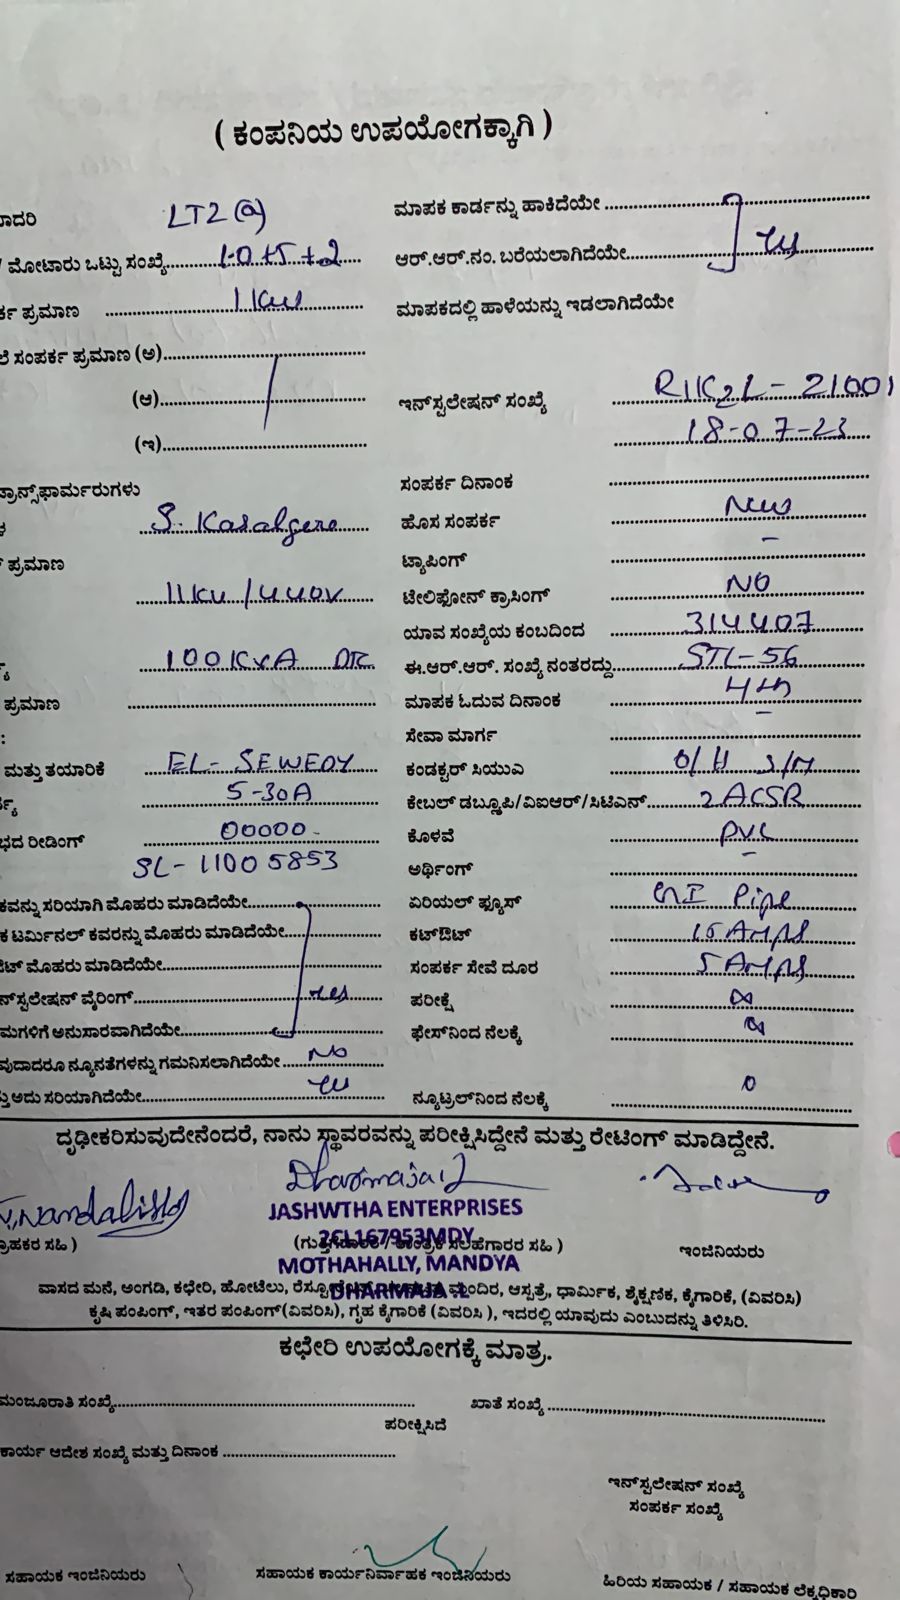 ( ಕಂಪನಿಯ ಉಪಯೋಗಕ್ಕಾಗಿ )
ಾದರಿ LT2 (a) ಮಾಪಕ ಕಾರ್ಡನ್ನು ಹಾಕಿದೆಯೇ
/ ಮೋಟಾರು ಒಟ್ಟು ಸಂಖ್ಯೆ 1-0+5+2 ಆರ್.ಆರ್.ನಂ. ಬರೆಯಲಾಗಿದೆಯೇ
ರ್ಕ ಪ್ರಮಾಣ 1 KW ಮಾಪಕದಲ್ಲಿ ಹಾಳೆಯನ್ನು ಇಡಲಾಗಿದೆಯೇ
ಲೆ ಸಂಪರ್ಕ ಪ್ರಮಾಣ (ಅ)
(ಆ) ಇನ್‌ಸ್ಟಲೇಷನ್ ಸಂಖ್ಯೆ R11K2L-21001
(ಇ) 18-07-23
ಟ್ರಾನ್ಸ್‌ಫಾರ್ಮರುಗಳು ಸಂಪರ್ಕ ದಿನಾಂಕ
S. Kasalgere ಹೊಸ ಸಂಪರ್ಕ New
ಪ್ರಮಾಣ ಟ್ಯಾಪಿಂಗ್ -
11KV/440V ಟೆಲಿಫೋನ್ ಕ್ರಾಸಿಂಗ್ NO
ಯಾವ ಸಂಖ್ಯೆಯ ಕಂಬದಿಂದ 314407
100KVA ಈ.ಆರ್.ಆರ್. ಸಂಖ್ಯೆ ನಂತರದ್ದು STL-56
ಪ್ರಮಾಣ ಮಾಪಕ ಓದುವ ದಿನಾಂಕ 4th
: ಸೇವಾ ಮಾರ್ಗ -
ಮತ್ತು ತಯಾರಿಕೆ EL-SEWEDY ಕಂಡಕ್ಟರ್ ಸಿಯುವಿ O/H S/M
5-30A ಕೇಬಲ್ ಡಬ್ಲೂಪಿ/ವಿಐಆರ್/ಸಿಟಿಎನ್ 2ACSR
ಭದ ರೀಡಿಂಗ್ 00000- ಕೊಳವೆ PVC
SL-11005853 ಅರ್ಥಿಂಗ್ -
ಕವನ್ನು ಸರಿಯಾಗಿ ಮೊಹರು ಮಾಡಿದೆಯೇ ಏರಿಯಲ್ ಫ್ಯೂಸ್ GI Pipe
ಕ ಟರ್ಮಿನಲ್ ಕವರನ್ನು ಮೊಹರು ಮಾಡಿದೆಯೇ ಕಟ್‌ಔಟ್ 15 AMPS
ಟ್ ಮೊಹರು ಮಾಡಿದೆಯೇ ಸಂಪರ್ಕ ಸೇವೆ ದೂರ 5 AMPS
ನ್‌ಸ್ಟಲೇಷನ್ ವೈರಿಂಗ್ yes ಪರೀಕ್ಷೆ ∞
ಮಗಳಿಗೆ ಅನುಸಾರವಾಗಿದೆಯೇ ಫೇಸ್‌ನಿಂದ ನೆಲಕ್ಕೆ ∞
ವುದಾದರೂ ನ್ಯೂನತೆಗಳನ್ನು ಗಮನಿಸಲಾಗಿದೆಯೇ No
ತ್ತು ಅದು ಸರಿಯಾಗಿದೆಯೇ ನ್ಯೂಟ್ರಲ್‌ನಿಂದ ನೆಲಕ್ಕೆ 0
ದೃಢೀಕರಿಸುವುದೇನೆಂದರೆ, ನಾನು ಸ್ಥಾವರವನ್ನು ಪರೀಕ್ಷಿಸಿದ್ದೇನೆ ಮತ್ತು ರೇಟಿಂಗ್ ಮಾಡಿದ್ದೇನೆ.
JASHWTHA ENTERPRISES
ರಾಹಕರ ಸಹಿ ) 2CL167953MDY ಸಲಹೆಗಾರರ ಸಹಿ ) ಇಂಜಿನಿಯರು
MOTHAHALLY, MANDYA
DHARMAJA .L
ವಾಸದ ಮನೆ, ಅಂಗಡಿ, ಕಛೇರಿ, ಹೋಟೆಲು, ಮಂದಿರ, ಆಸ್ಪತ್ರೆ, ಧಾರ್ಮಿಕ, ಶೈಕ್ಷಣಿಕ, ಕೈಗಾರಿಕೆ, (ವಿವರಿಸಿ)
ಕೃಷಿ ಪಂಪಿಂಗ್, ಇತರ ಪಂಪಿಂಗ್(ವಿವರಿಸಿ), ಗೃಹ ಕೈಗಾರಿಕೆ (ವಿವರಿಸಿ ), ಇದರಲ್ಲಿ ಯಾವುದು ಎಂಬುದನ್ನು ತಿಳಿಸಿರಿ.
ಕಛೇರಿ ಉಪಯೋಗಕ್ಕೆ ಮಾತ್ರ.
ಮಂಜೂರಾತಿ ಸಂಖ್ಯೆ ಖಾತೆ ಸಂಖ್ಯೆ
ಪರೀಕ್ಷಿಸಿದೆ
ಕಾರ್ಯ ಆದೇಶ ಸಂಖ್ಯೆ ಮತ್ತು ದಿನಾಂಕ
ಇನ್‌ಸ್ಟಲೇಷನ್ ಸಂಖ್ಯೆ
ಸಂಪರ್ಕ ಸಂಖ್ಯೆ
ಸಹಾಯಕ ಇಂಜಿನಿಯರು ಸಹಾಯಕ ಕಾರ್ಯನಿರ್ವಾಹಕ ಇಂಜಿನಿಯರು ಹಿರಿಯ ಸಹಾಯಕ / ಸಹಾಯಕ ಲೆಕ್ಕಧಿಕಾರಿ